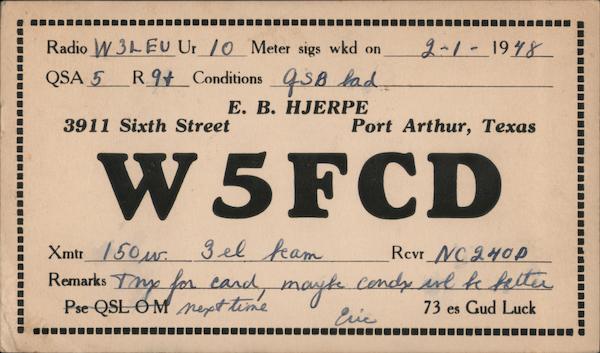 Radio W3LEU Ur 10 Meter sigs wkd on 2-1- 1948
QSA 5 R 9+ Conditions QSB bad
E. B. HJERPE
3911 Sixth Street Port Arthur, Texas
W5FCD
Xmtr 150w. 3 el beam Rcvr NC240D
Remarks Tnx for card, maybe condx wl be better
Pse QSL OM next time 73 es Gud Luck
Eric